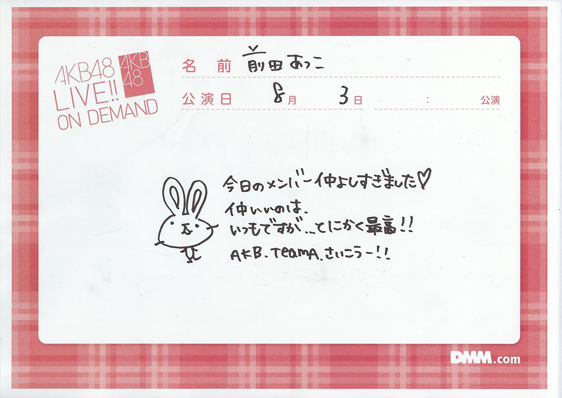 AKB48
LIVE!!
ON DEMAND
AKB
48
名前 前田あつこ
公演日 8月 3日 : 公演
今日のメンバー仲よしすぎました♡
仲いいのは、
いつもですが...とにかく最高!!
AKB.TeamA.さいこうー!!
DMM.com